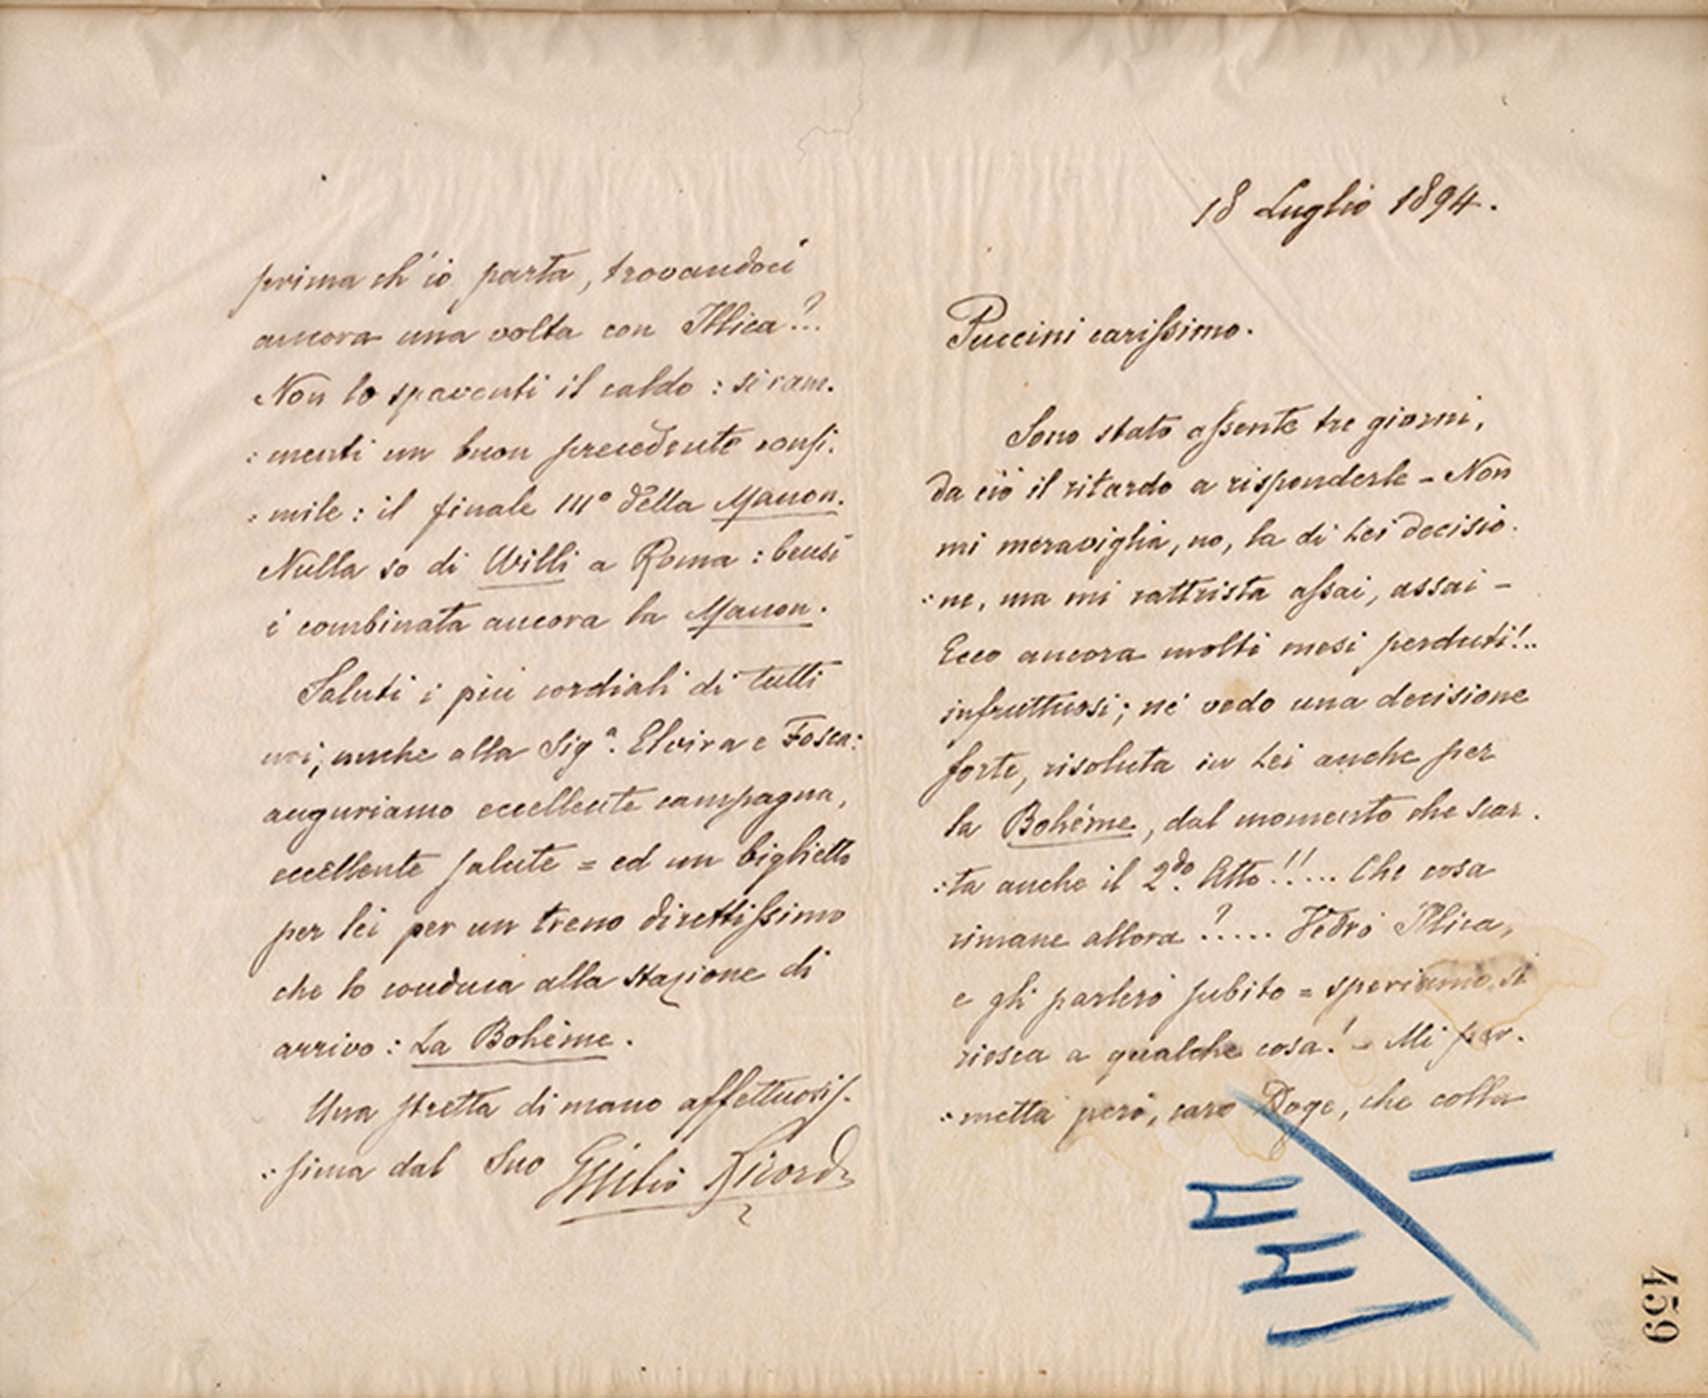 18 Luglio 1894.
Puccini carissimo.
Sono stato assente tre giorni,
da ciò il ritardo a risponderle - Non
mi meraviglia, no, la di Lei decisio-
:ne, ma mi rattrista assai, assai -
Ecco ancora molti mesi perduti!..
infruttuosi; nè vedo una decisione
forte, risoluta in Lei anche per
la Bohème, dal momento che scar-
:ta anche il 2do. Atto!!.... Che cosa
rimane allora?..... Vedrò Illica,
e gli parlerò subito = speriamo si
riesca a qualche cosa! - Mi per-
:metta però, caro Doge, che colla
prima ch'io parta, trovandoci
ancora una volta con Illica?..
Non lo spaventi il caldo: si ram-
:menti un buon precedente consi-
:mile: il finale IIIº della Manon.
Nulla so di Willi a Roma: bensì
è combinata ancora la Manon.
Saluti i più cordiali di tutti
noi, anche alla Sigª. Elvira e Fosca:
auguriamo eccellente campagna,
eccellente salute = ed un biglietto
per lei per un treno direttissimo
che lo conduca alla stazione di
arrivo: La Bohème.
Una stretta di mano affettuosis-
:sima dal Suo Giulio Ricordi
459